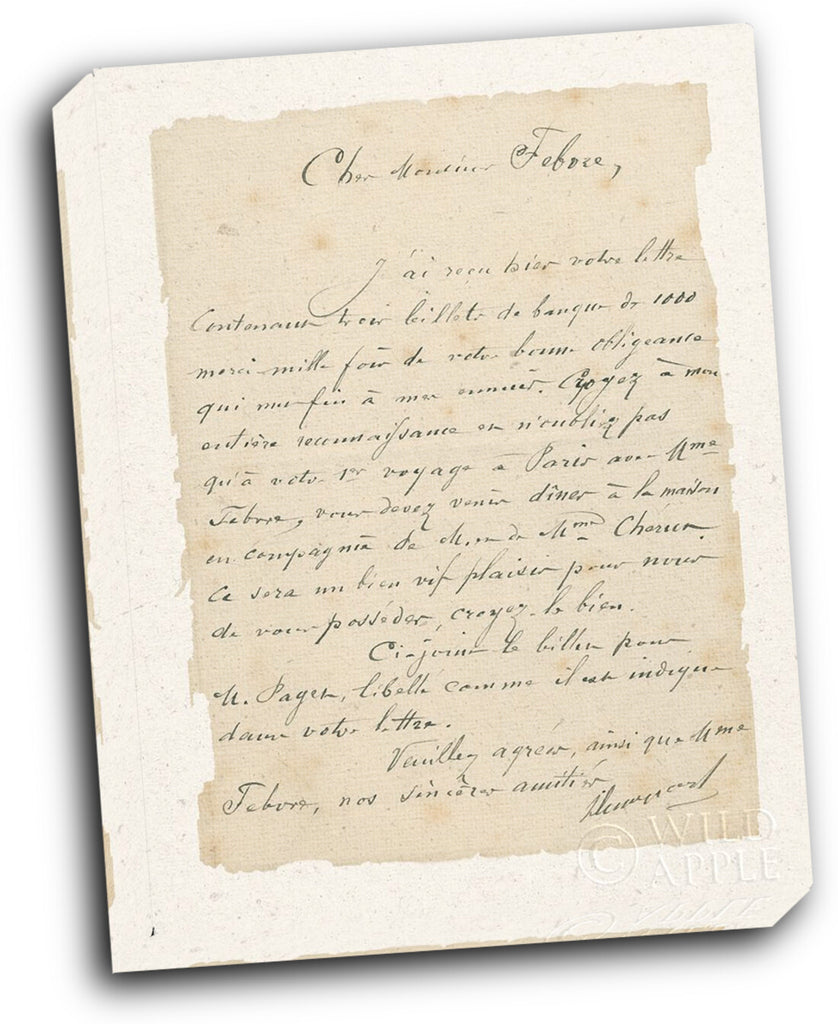 Cher Monsieur Febvre,
J'ai reçu hier votre lettre
Contenant trois billets de banque de 1000
merci mille fois de votre bonne obligeance
qui met fin à mes ennuis. Croyez à mon
entière reconnaissance et n'oubliez pas
qu'à votre 1er voyage à Paris avec Mme
Febvre, vous devez venir dîner à la maison
en compagnie de M. et de Mme
ce sera un bien vif plaisir pour nous
de vous posséder, croyez-le bien.
Ci-joint le billet pour
M. Paget, libellé comme il est indiqué
dans votre lettre.
Veuillez agréer, ainsi que Mme
Febvre, nos sincères amitiés
© WILD
APPLE